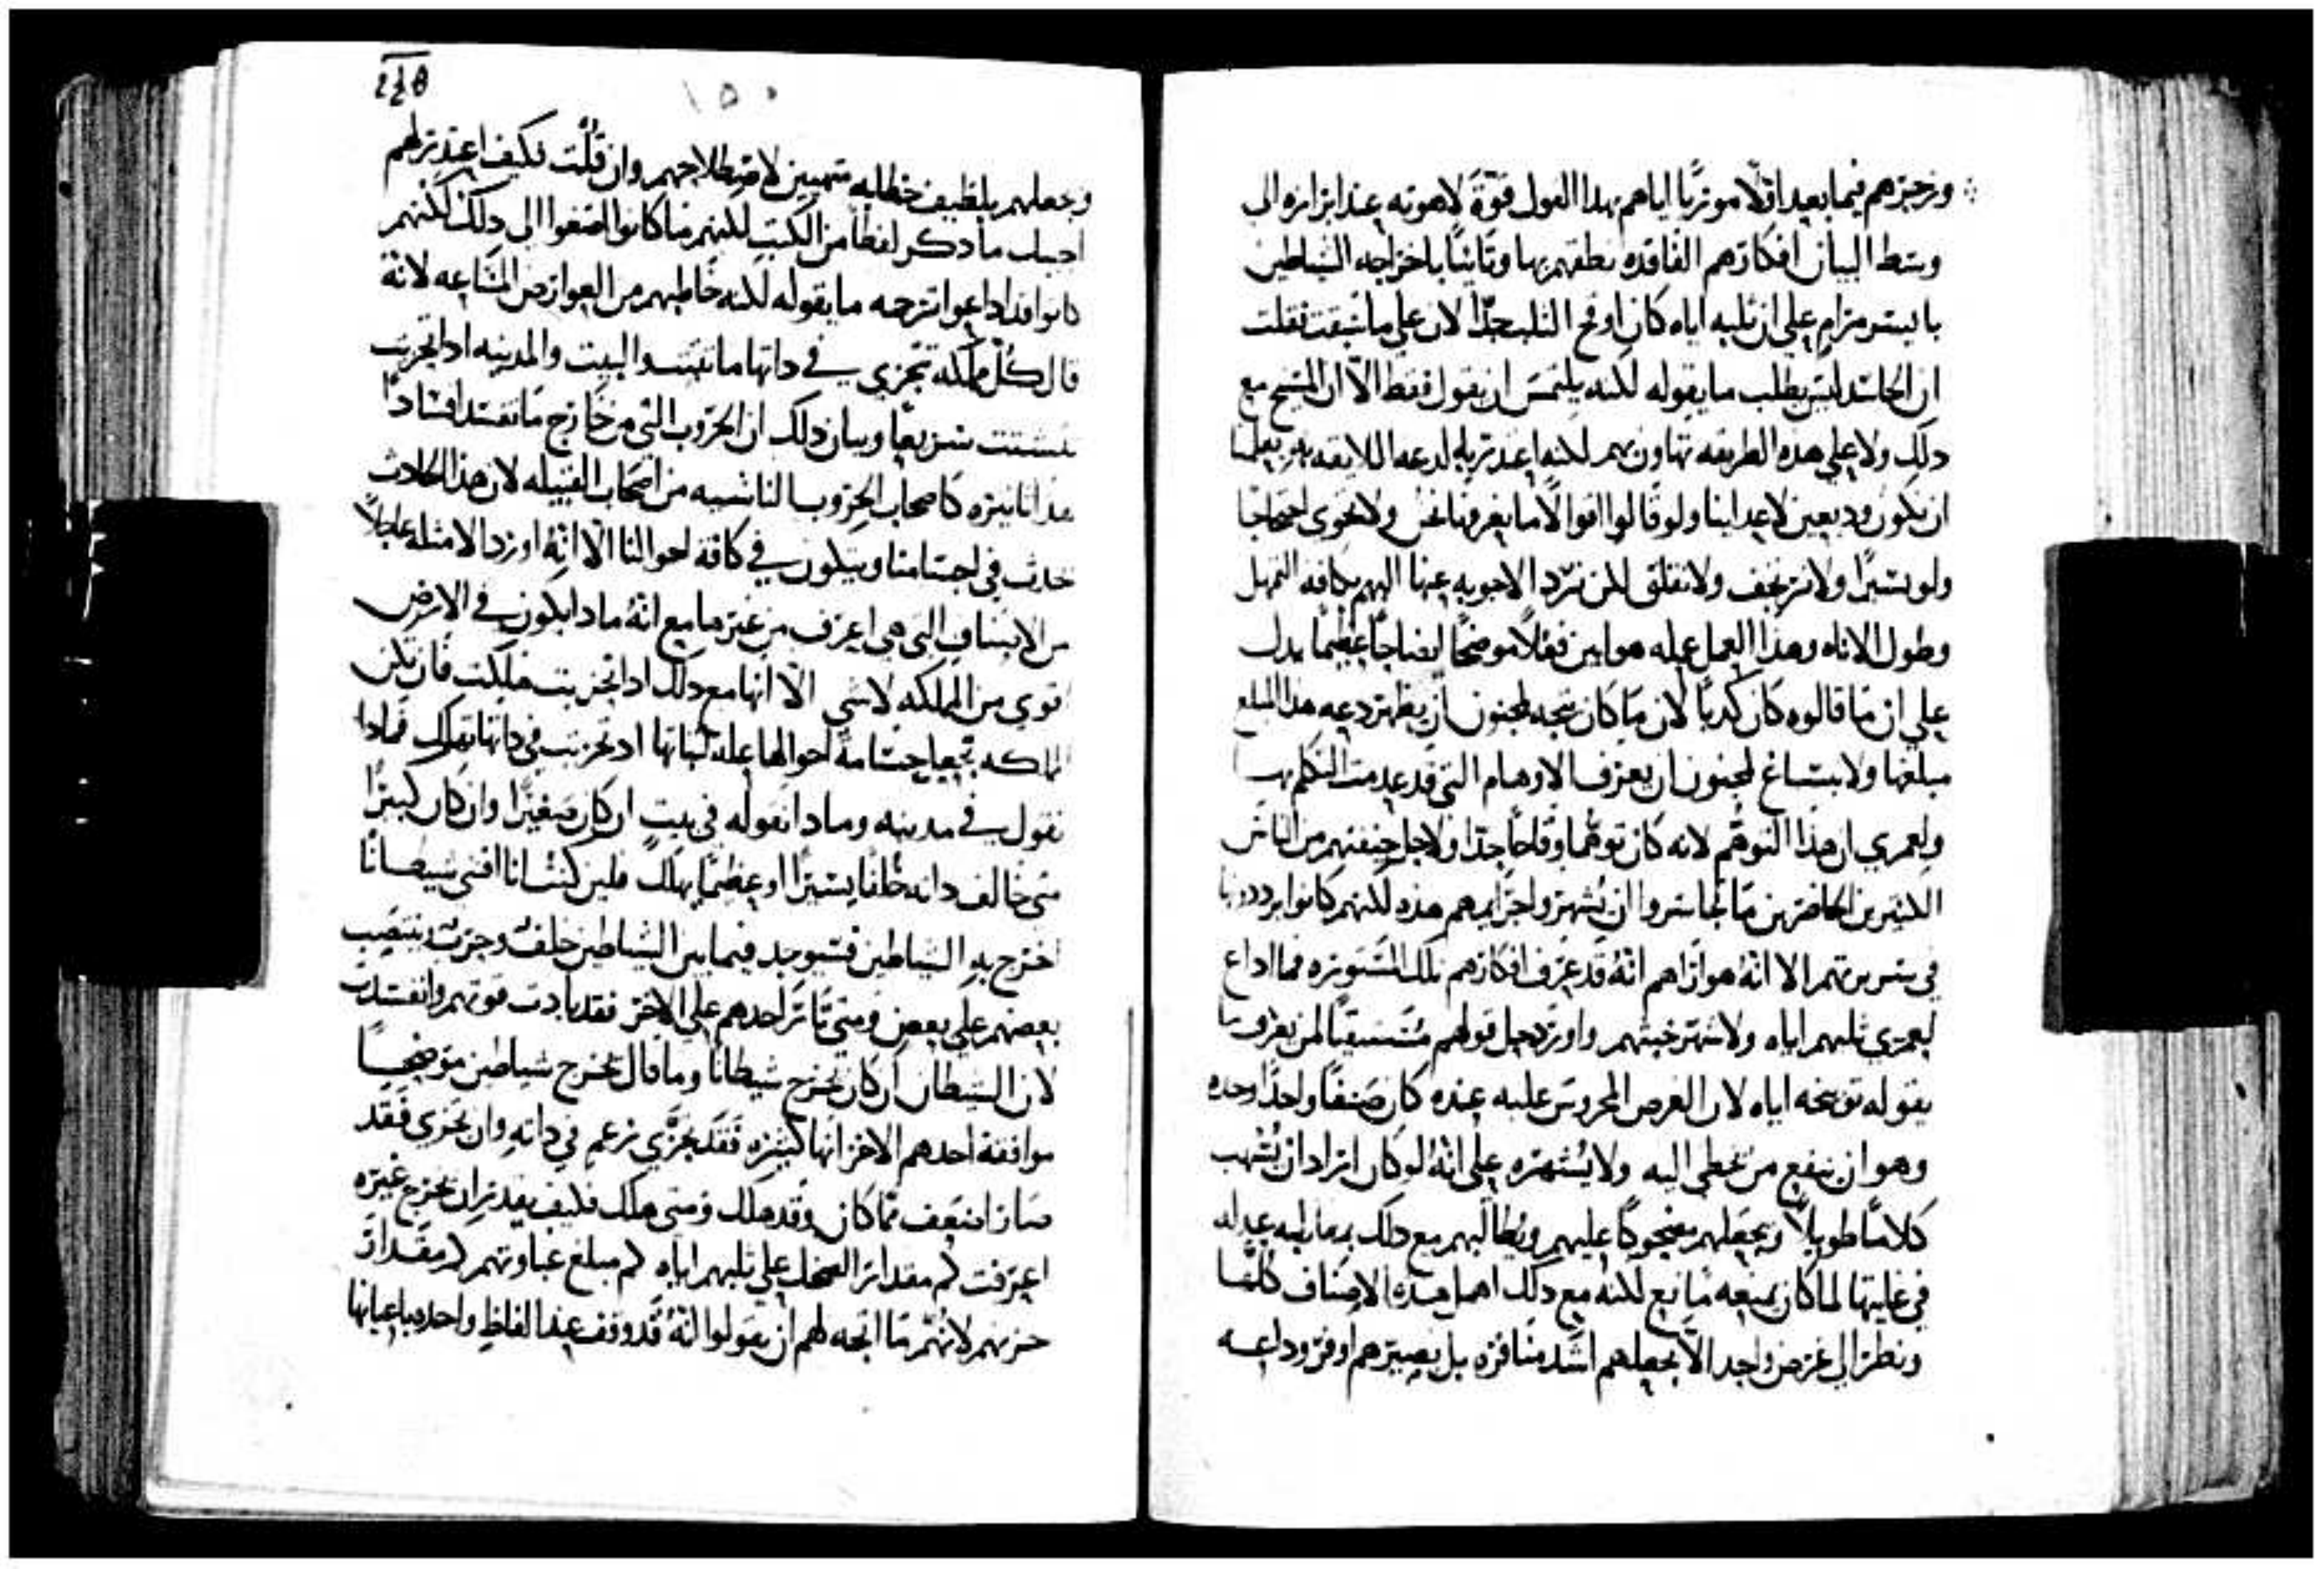 وزجرهم فيما بعد اولًا موريًا اياهم بهدا القول قوة لاهوته عند ابرازه الى
وسط البيان افكارهم الفاقده نطقهم بها وثانيًا باخراجه الشياطين
بايسر مرام على ان ثلبه اياه كان اوقح الثلب جدًّا لان على ما سبقت فقلت
ان الحاسد ليس يطلب ما يقوله لكنه يلتمس ان يقول فقط الّا ان المسيح مع
دلك ولا على هده الطريقه تهاون بهم لكنه اعتدر بالدعه اللايقه به يعلمنا
ان نكون وديعين لاعداينا ولو قالوا اقوالًا ما يعرفنا نحن ولا تحوي احتجاجًا
ولو يسيرًا ولا نرتجف ولا نقلق لكن نرد الاجوبه عنها اليهم بكافه التمهل
وطول الاناه وهدا العمل عمله هو ابين فعلًا موضحًا ايضاحًا عظيمًا يدل
على ان ما قالوه كان كدبًا لان ما كان يتجه لمجنون ان يظهر دعه هدا المبلغ
مبلغها ولا يستاغ لمجنون ان يعرف الاوهام التي قد عدمت التكلم بها
ولعمري ان هدا التوهم لانه كان توهمًا وقاحًا جدًا ولاجل خيفتهم من الناس
الكثيرين الحاضرين ما تجاسروا ان يشهروا جرايمهم هده لكنهم كانوا يرددونها
في سريرتهم الا انهُ هو اراهم انهُ قد عرف افكارهم تلك المستوره فما اداع
لعمري ثلبهم اياه ولا شهر خبثهم واورد حل قولهم مستسقيًا لمن يعرف ما
يقوله توبيخه اياه لان الغرض المحروس عليه عنده كان صنفًا واحدًا وحده
وهو ان ينفع من يخطي اليه ولا يشهره على انهُ لو كان اراد ان يسهب
كلامًا طويلًا ويجعلهم مضحوكًا عليهم ويطالبهم مع دلك بمطالبه عدله
في غايتها لما كان يمنعه مانع لكنه مع دلك اهمل هده الاصناف كلها
ونظر الى غرض واحد الّا يجعلهم اشد منافره بل يصيرهم اوفر وداعه
248
١٥٠
وجعلهم بلطيف خطابه متهيين لاصطلاحهم وان قُلت فكيف اعتدر لهم
اجبك ما دكر لفظًا من الكتب لانهم ما كانوا اصغوا الى دلك لكنهم
كانوا قد اداعوا ترجمه ما يقوله لكنه خاطبهم من العوارض الشايعه لانهُ
قال كُل مملكه تتجزي في داتها ما تثبت والبيت والمدينه ادا تحزبت
تشتت سريعًا وبيان دلك ان الحروب التي من خارج ما تفسد افسادًا
هدا تاثيره كاصحاب الحروب الناشبه من اصحاب القبيله لان هدا الحادث
حدث في اجسامنا ويكون في كافه احوالنا الّا انّهُ اورد الامثله عاجلًا
من الاصناف التي هي اعرف من غيرها مع انهُ مادا يكون في الارض
اقوى من المملكه لا شي الّا انها مع دلك ادا تحزبت هلكت فان تكن
المملكه بجميع جسامه احوالها عله ثباتها اد تحزبت في داتها تهلك فمادا
نقول في مدينه ومادا نقوله في بيت ان كان صغيرًا وان كان كبيرًا
متى خالف داته خلفًا يسيرًا او عظيمًا يهلك فلين كنت انا اقتنى شيطانًا
اخرج به الشياطين فسيوجد فيما بين الشياطين خلف وحرب ينتصب
بعضهم على بعض ومتى ثار احدهم على الاخر فقد بادت قوتهم وانفسدت
لان الشيطان ان كان يخرج شيطانًا وما قال يخرج شياطين موضحًا
موافقة احدهم الاخر انها كثيره فقد تجزّى بزعم في داته وان تجزى فقد
صار اضعف مما كان وقد هلك ومتى هلك فكيف يقدر ان يخرج غيره
اعرفت كم مقدار الضحك على ثلبهم اياه كم مبلغ غباوتهم كم مقدار
حزبهم لانهُم ما اتجه لهم ان يقولوا انّهُ قد وقف عند الفاظ واحده باعيانها